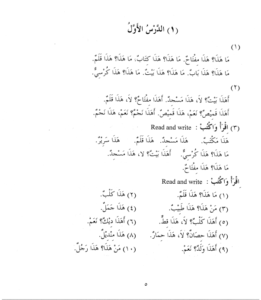 (١) الدَّرْسُ الأَوَّلُ
(١)
مَا هَذَا؟ هَذَا مِفْتَاحٌ. مَا هَذَا؟ هَذَا كِتَابٌ. مَا هَذَا؟ هَذَا قَلَمٌ.
مَا هَذَا؟ هَذَا بَابٌ. مَا هَذَا؟ هَذَا بَيْتٌ. مَا هَذَا؟ هَذَا كُرْسِيٌّ.
(٢)
أَهَذَا بَيْتٌ؟ لَا، هَذَا مَسْجِدٌ. أَهَذَا مِفْتَاحٌ؟ لَا، هَذَا قَلَمٌ.
أَهَذَا قَمِيْصٌ؟ نَعَمْ، هَذَا قَمِيْصٌ. أَهَذَا نَجْمٌ؟ نَعَمْ، هَذَا نَجْمٌ.
(٣) اقْرَأْ وَاكْتُبْ : Read and write
هَذَا مَكْتَبٌ. هَذَا مَسْجِدٌ. هَذَا قَلَمٌ. هَذَا سَرِيْرٌ.
مَا هَذَا؟ هَذَا كُرْسِيٌّ. أَهَذَا بَيْتٌ؟ لا، هَذَا مَسْجِدٌ.
مَا هَذَا؟ هَذَا مِفْتَاحٌ.
اقْرَأْ وَاكْتُبْ : Read and write
(١) مَا هَذَا؟ هَذَا قَلَمٌ. (٢) هَذَا كَلْبٌ.
(٣) مَنْ هَذَا؟ هَذَا طَبِيْبٌ. (٤) هَذَا جَمَلٌ.
(٥) أَهَذَا كَلْبٌ؟ لَا، هَذَا قِطٌّ. (٦) أَهَذَا دِيْكٌ؟ نَعَمْ.
(٧) أَهَذَا حِصَانٌ؟ لَا، هَذَا حِمَارٌ. (٨) هَذَا مِنْدِيْلٌ.
(٩) أَهَذَا وَلَدٌ؟ نَعَمْ. (١٠) مَنْ هَذَا؟ هَذَا رَجُلٌ.
٥